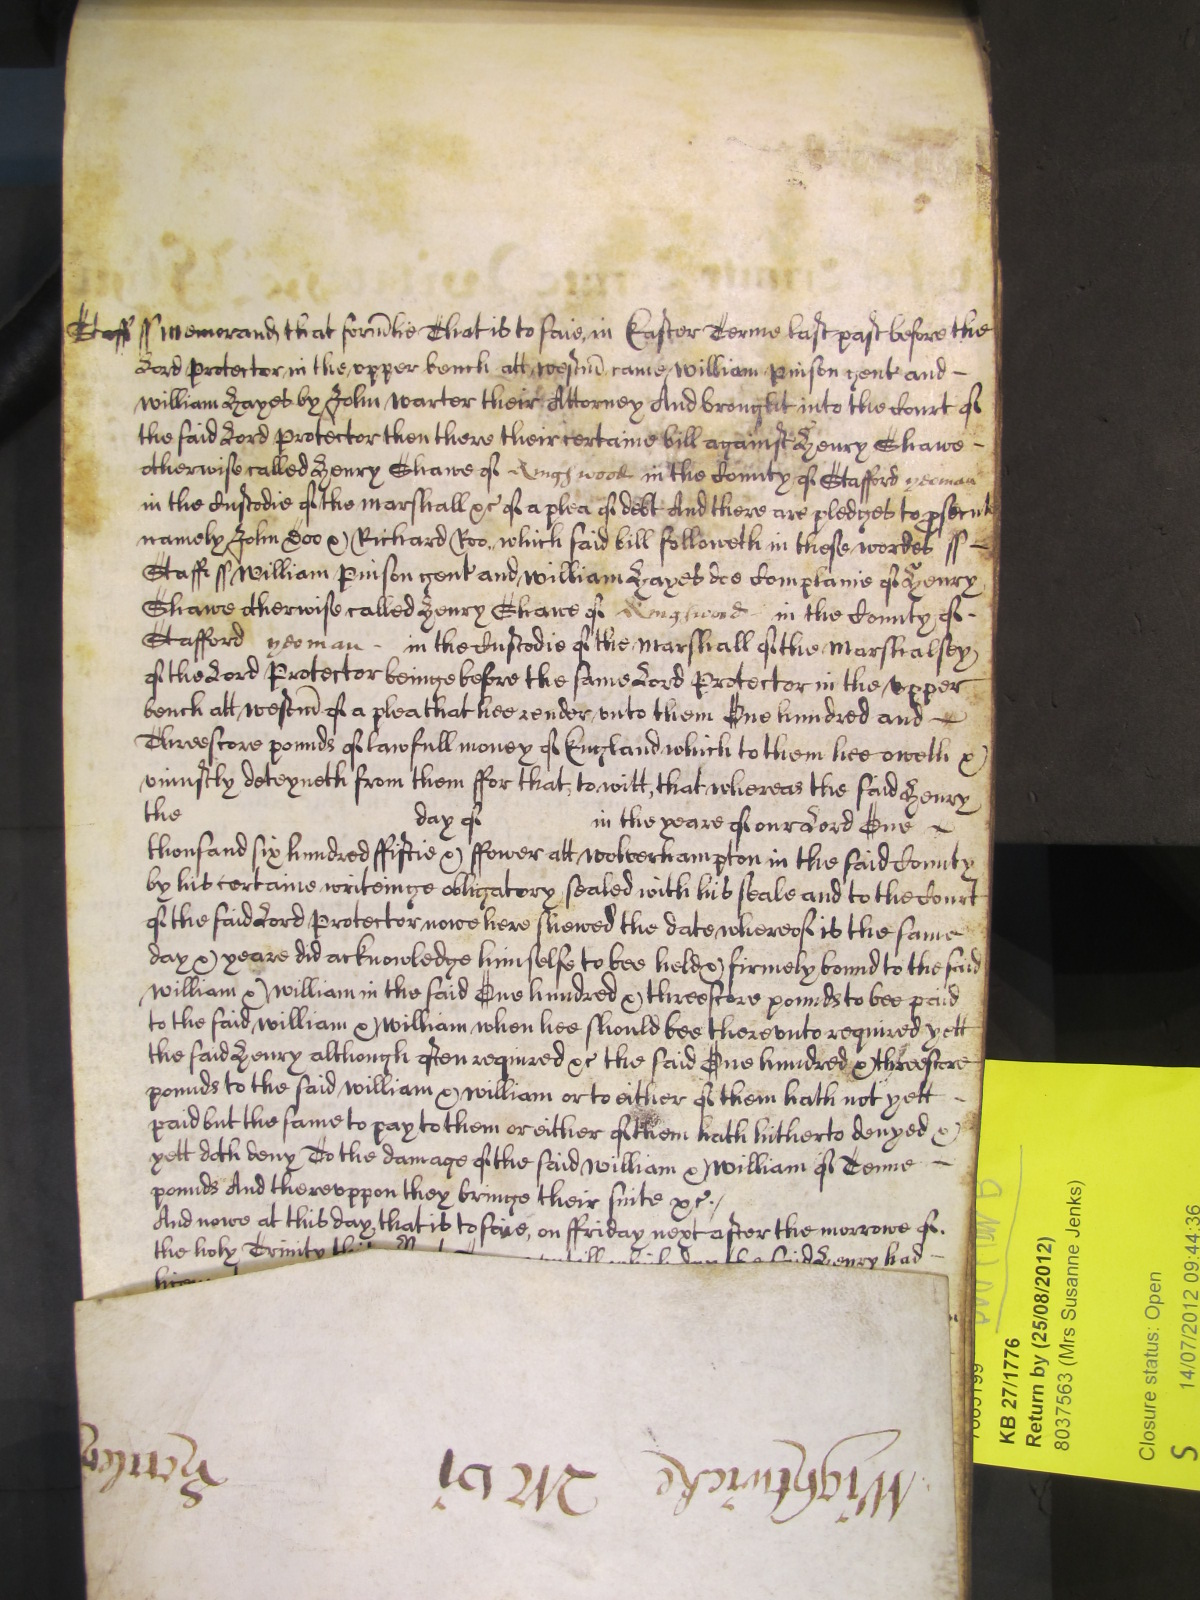 Staff ss Memorand that form̄lie That is to saie, in Easter Terme last past before the
Lord Protector in the upper bench att Westm̄ came William Pinson gent and -
William Hayes by John Warter their Attorney And brought into the Court of
the said Lord Protector then there their certaine bill against Henry Shawe -
otherwise called Henry Shawe of Kingswood in the County of Stafford yeoman
in the Custodie of the Marshall &c of a plea of debt And there are pledges to psecute
namely John Doo & Richard Roo, which said bill followeth in these wordes ss -
Staff ss William Pinson gent and William Hayes doe Complanie of Henry
Shawe otherwise called Henry Shawe of Kingswood in the County of -
Stafford yeoman - in the Custodie of the Marshall of the Marshalsey
of the Lord Protector beinge before the same Lord Protector in the upper
bench att Westm̄ of a plea that hee render unto them One hundred and -
Threescore pounds of lawfull money of England which to them hee oweth &
uniustly deteyneth from them ffor that, to witt, that whereas the said Henry
the day of in the yeare of our Lord One -
thousand six hundred ffiftie & ffower att Wolverhampton in the said County
by his certaine writeinge obligatory sealed with his seale and to the Court
of the said Lord Protector nowe here shewed the date whereof is the same
day & yeare did acknowledge himselfe to bee held & firmely bound to the said
William & William in the said One hundred & threescore pounds to bee paid
to the said William & William when hee should bee thereunto required yett
the said Henry although often required &c the said One hundred & threescore
pounds to the said William & William or to either of them hath not yett -
paid but the same to pay to them or either of them hath hitherto denyed &
yett doth deny To the damage of the said William & William of Tenne -
pounds And thereuppon they bringe their suite &c./
And nowe at this day, that is to saie, on ffriday next after the morrowe of.
the holy Trinity this the said Henry had -
Wightwicke
KB 27/1776
Return by (25/08/2012)
8037563 (Mrs Susanne Jenks)
Closure status: Open
S 14/07/2012 09:44:36